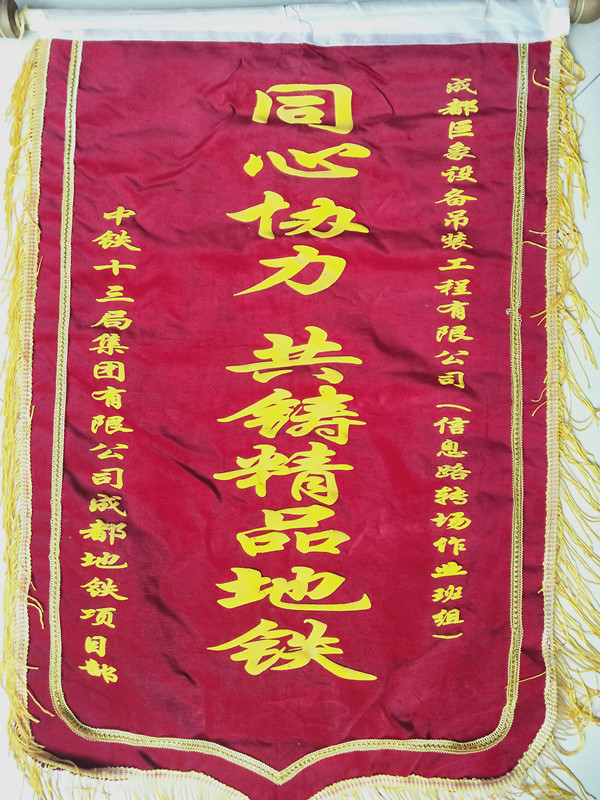 成都巨象设备吊装工程有限公司（信息路转场作业班组）
同心协力 共铸精品地铁
中铁十三局集团有限公司成都地铁项目部